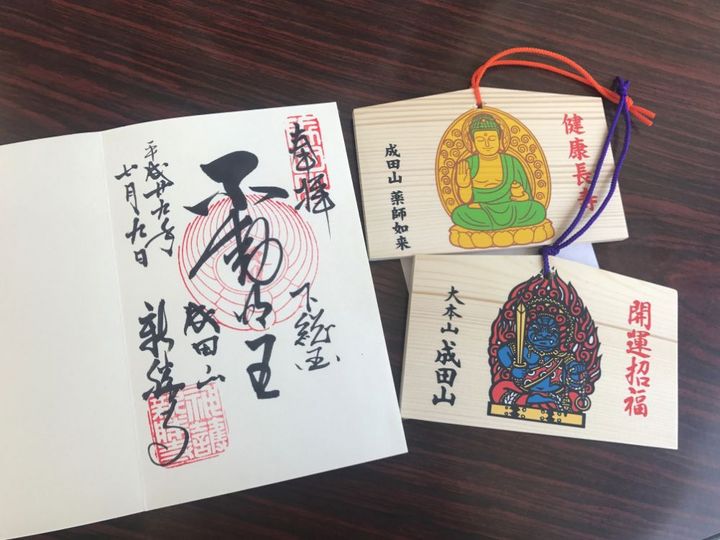 奉拝
不動明王
下総国
成田山
新勝寺
平成廿九年
七月九日
健康長寿
成田山 薬師如来
開運招福
大本山 成田山